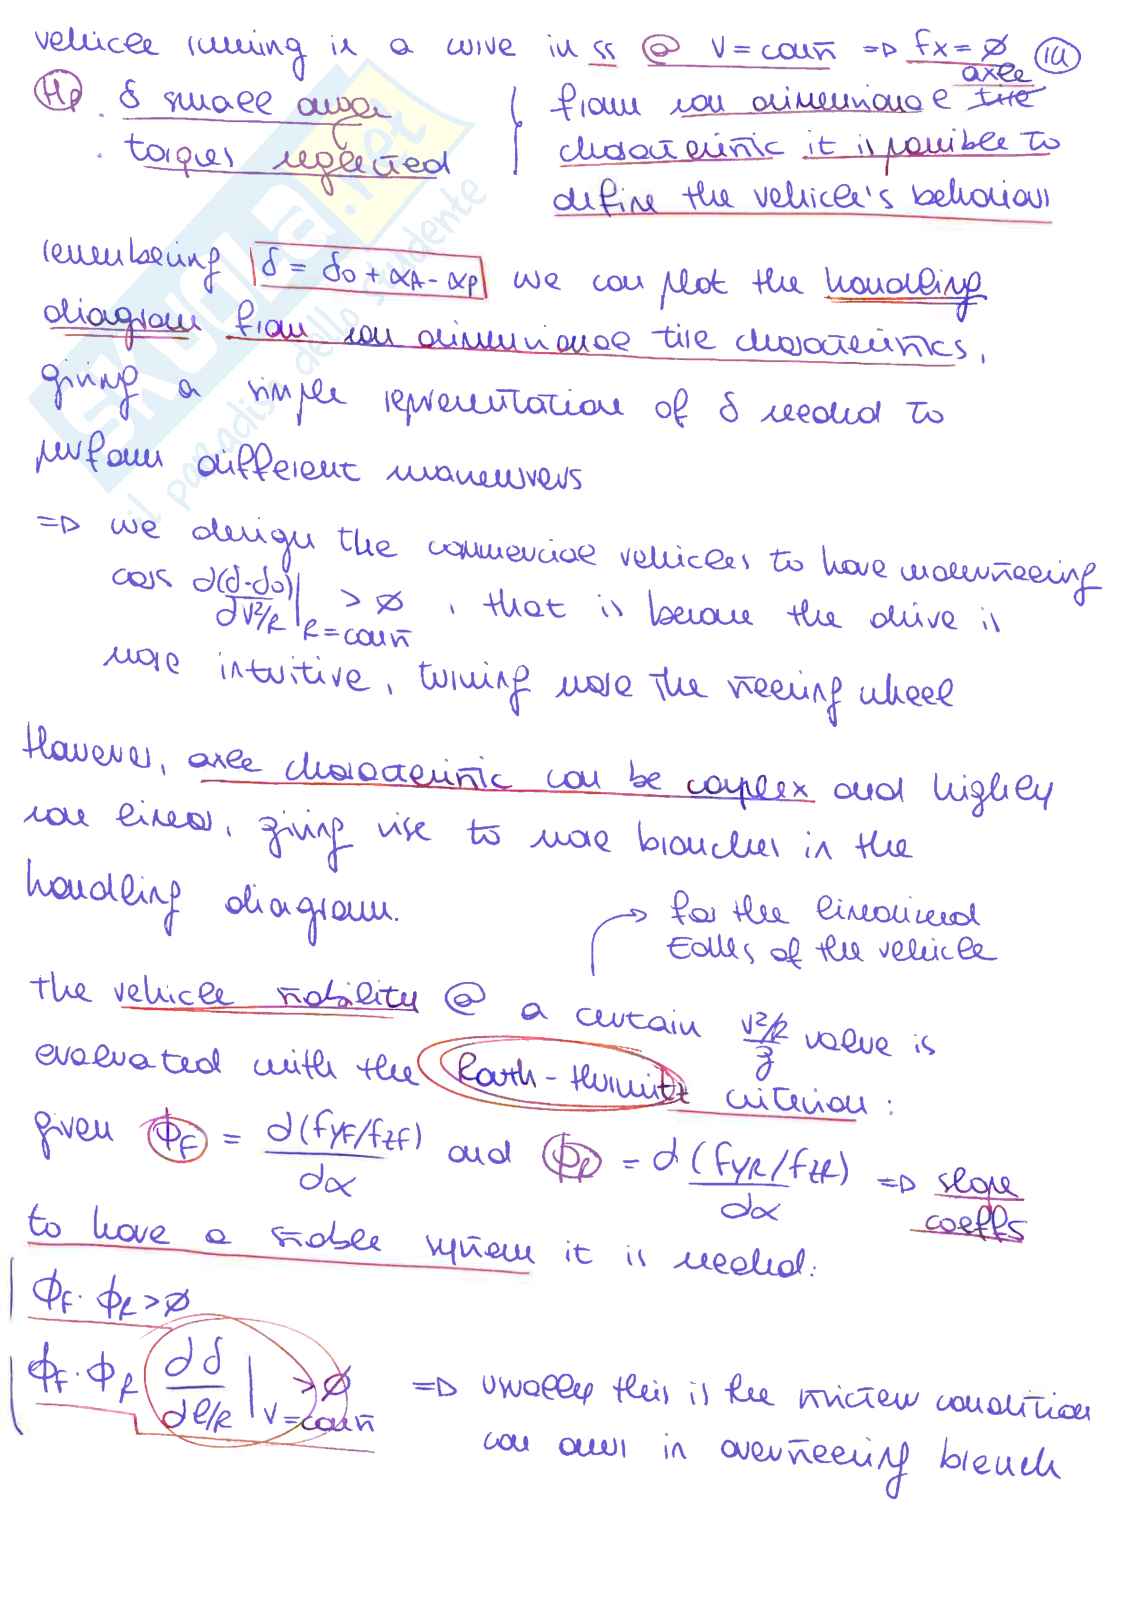 vehicle running in a curve in ss @ V = cost => Fx = ∅ (14)
Hp. δ small angle
. torques neglected
from non dimensional tire axle
characteristic it is possible to
define the vehicle's behaviour
remembering δ = δ0 + αA - αP we can plot the handling
diagram from non dimensional tire characteristics,
giving a simple representation of δ needed to
perform different maneuvers
=> we design the commercial vehicles to have understeering
cars d(δ-δ0)/d V²/R |R=cost > ∅, that is because the drive is
more intuitive, turning more the steering wheel
However, axle characteristic can be complex and highly
non linear, giving rise to more branches in the
handling diagram.
for the linearized
eqs of the vehicle
the vehicle stability @ a certain V²/R/g value is
evaluated with the Routh-Hurwitz criterion:
given ΦF = d(FYF/FZF)/dα and ΦR = d(FYR/FZR)/dα => slope
coeffs
to have a stable system it is needed:
ΦF · ΦR > ∅
ΦF · ΦR dδ/d l/R |V=cost > ∅ => usually this is the stricter condition
can occur in oversteering branch
skuola.net
il paradiso dello studente